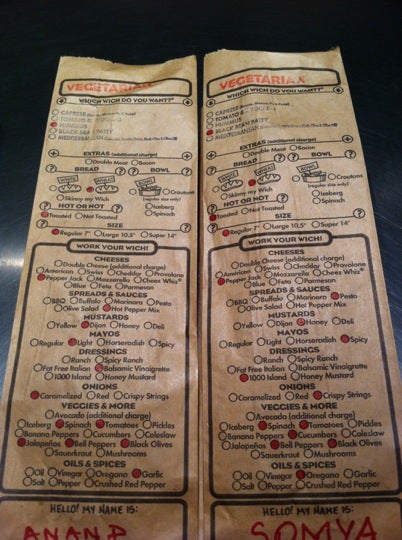 VEGETARIAN
WHICH WICH DO YOU WANT?
CAPRESE
TOMATO &
HUMMUS
BLACK BEAN PATTY
MEDITERRANEAN
EXTRAS (additional charge)
Double Meat Bacon
BREAD BOWL
WHITE WHEAT
Croutons
(regular size only)
Skinny my Wich Iceberg
HOT OR NOT Spinach
Toasted Not Toasted
SIZE
Regular 7" Large 10.5" Super 14"
WORK YOUR WICH!
CHEESES
Double Cheese (additional charge)
American Swiss Cheddar Provolone
Pepper Jack Mozzarella Cheez Whiz
Blue Feta Parmesan
SPREADS & SAUCES
BBQ Buffalo Marinara Pesto
Olive Salad Hot Pepper Mix
MUSTARDS
Yellow Dijon Honey Deli
MAYOS
Regular Light Horseradish Spicy
DRESSINGS
Ranch Spicy Ranch
Fat Free Italian Balsamic Vinaigrette
1000 Island Honey Mustard
ONIONS
Caramelized Red Crispy Strings
VEGGIES & MORE
Avocado (additional charge)
Iceberg Spinach Tomatoes Pickles
Banana Peppers Cucumbers Coleslaw
Jalapeños Bell Peppers Black Olives
Sauerkraut Mushrooms
OILS & SPICES
Oil Vinegar Oregano Garlic
Salt Pepper Crushed Red Pepper
HELLO! MY NAME IS:
ANAND
VEGETARIAN
WHICH WICH DO YOU WANT?
CAPRESE
TOMATO &
HUMMUS
BLACK BEAN PATTY
MEDITERRANEAN
EXTRAS (additional charge)
Double Meat Bacon
BREAD BOWL
WHITE WHEAT
Croutons
(regular size only)
Skinny my Wich Iceberg
HOT OR NOT Spinach
Toasted Not Toasted
SIZE
Regular 7" Large 10.5" Super 14"
WORK YOUR WICH!
CHEESES
Double Cheese (additional charge)
American Swiss Cheddar Provolone
Pepper Jack Mozzarella Cheez Whiz
Blue Feta Parmesan
SPREADS & SAUCES
BBQ Buffalo Marinara Pesto
Olive Salad Hot Pepper Mix
MUSTARDS
Yellow Dijon Honey Deli
MAYOS
Regular Light Horseradish Spicy
DRESSINGS
Ranch Spicy Ranch
Fat Free Italian Balsamic Vinaigrette
1000 Island Honey Mustard
ONIONS
Caramelized Red Crispy Strings
VEGGIES & MORE
Avocado (additional charge)
Iceberg Spinach Tomatoes Pickles
Banana Peppers Cucumbers Coleslaw
Jalapeños Bell Peppers Black Olives
Sauerkraut Mushrooms
OILS & SPICES
Oil Vinegar Oregano Garlic
Salt Pepper Crushed Red Pepper
HELLO! MY NAME IS:
SOMYA